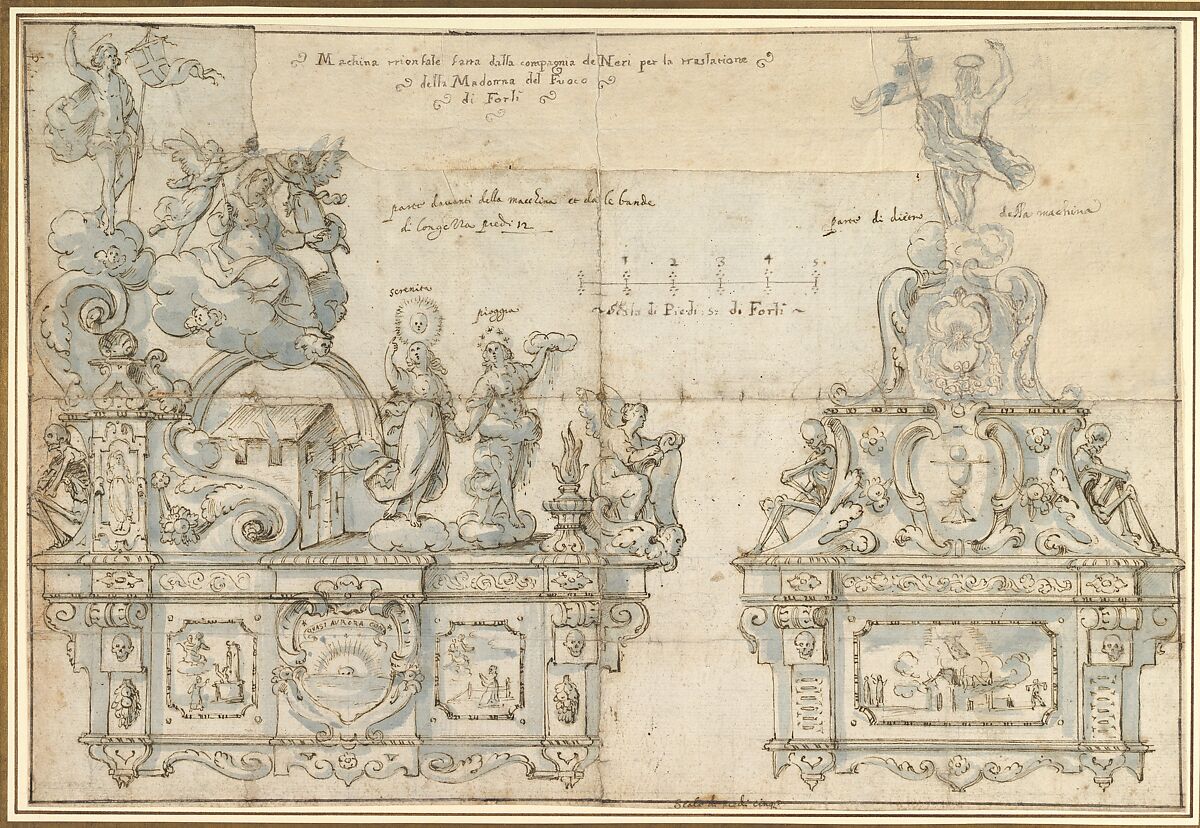 Machina trionfale fatta dalla compagnia de Neri per la traslatione
della Madonna del Fuoco
di Forlì
parte davanti della macchina et da le bande
di longezza piedi 12
parte di dietro della machina
1 2 3 4 5
Scala di Piedi: 5: di Forlì
serenità
pioggia
QUASI AVRORA CONS
Scala di piedi cinq